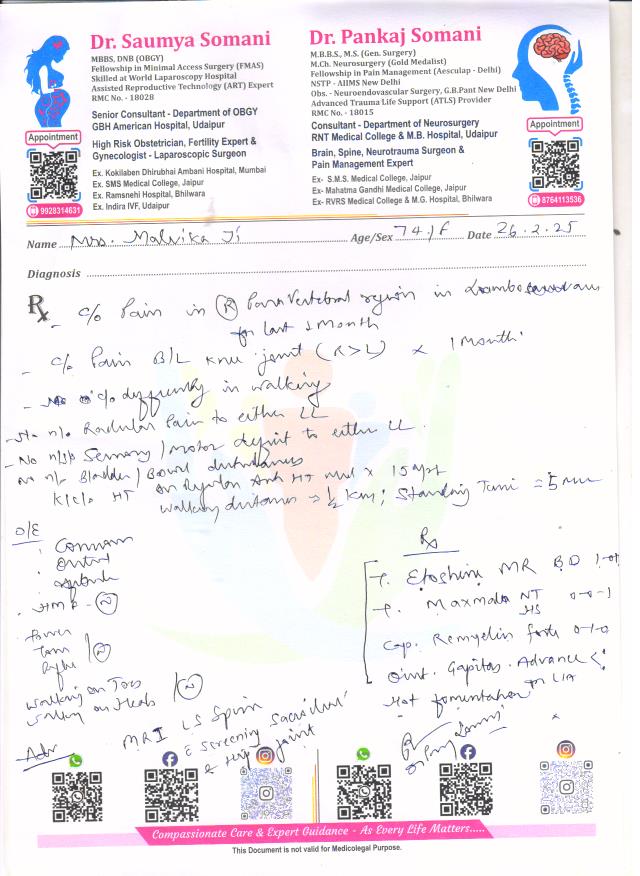 Dr. Saumya Somani
MBBS, DNB (OBGY)
Fellowship in Minimal Access Surgery (FMAS)
Skilled at World Laparoscopy Hospital
Assisted Reproductive Technology (ART) Expert
RMC No. - 18028
Senior Consultant - Department of OBGY
GBH American Hospital, Udaipur
High Risk Obstetrician, Fertility Expert &
Gynecologist - Laparoscopic Surgeon
Ex. Kokilaben Dhirubhai Ambani Hospital, Mumbai
Ex. SMS Medical College, Jaipur
Ex. Ramsnehi Hospital, Bhilwara
Ex. Indira IVF, Udaipur
Appointment
9928314631
Dr. Pankaj Somani
M.B.B.S., M.S. (Gen. Surgery)
M.Ch. Neurosurgery (Gold Medalist)
Fellowship in Pain Management (Aesculap - Delhi)
NSTP - AIIMS New Delhi
Obs. - Neuroendovascular Surgery, G.B.Pant New Delhi
Advanced Trauma Life Support (ATLS) Provider
RMC No. - 18015
Consultant - Department of Neurosurgery
RNT Medical College & M.B. Hospital, Udaipur
Brain, Spine, Neurotrauma Surgeon &
Pain Management Expert
Ex- S.M.S. Medical College, Jaipur
Ex- Mahatma Gandhi Medical College, Jaipur
Ex- RVRS Medical College & M.G. Hospital, Bhilwara
Appointment
8764113536
Name Mrs. Malvika Ji Age/Sex 74/F Date 26.2.25
Diagnosis
Rx
- c/o Pain in (R) Paravertebral region in
for last 1 month
- c/o Pain B/L knee joint (R>L) x 1 month
- c/o difficulty in walking
- No h/o Radicular Pain to either LL
- No h/o Sensory / motor deficit to either LL.
No h/o Bladder / Bowel disturbances
K/c/o HT on Regular Anti HT med x 15 yr
walking distance → 1/2 km; Standing Time = 5 min
O/E
Conscious
Orient
HMF - (N)
Power
Tone
(N)
Walking on Toes
Walking on Heels (N)
Adv
MRI LS Spine
c screening Sacroiliac
& Hip joint
Rx
T. Etoshine MR BD
T. NT
HS 0-0-1
Cap. Remyelin forte 0-1-0
Oint. Advance
for L/A
Hot fomentation
Compassionate Care & Expert Guidance - As Every Life Matters.....
This Document is not valid for Medicolegal Purpose.